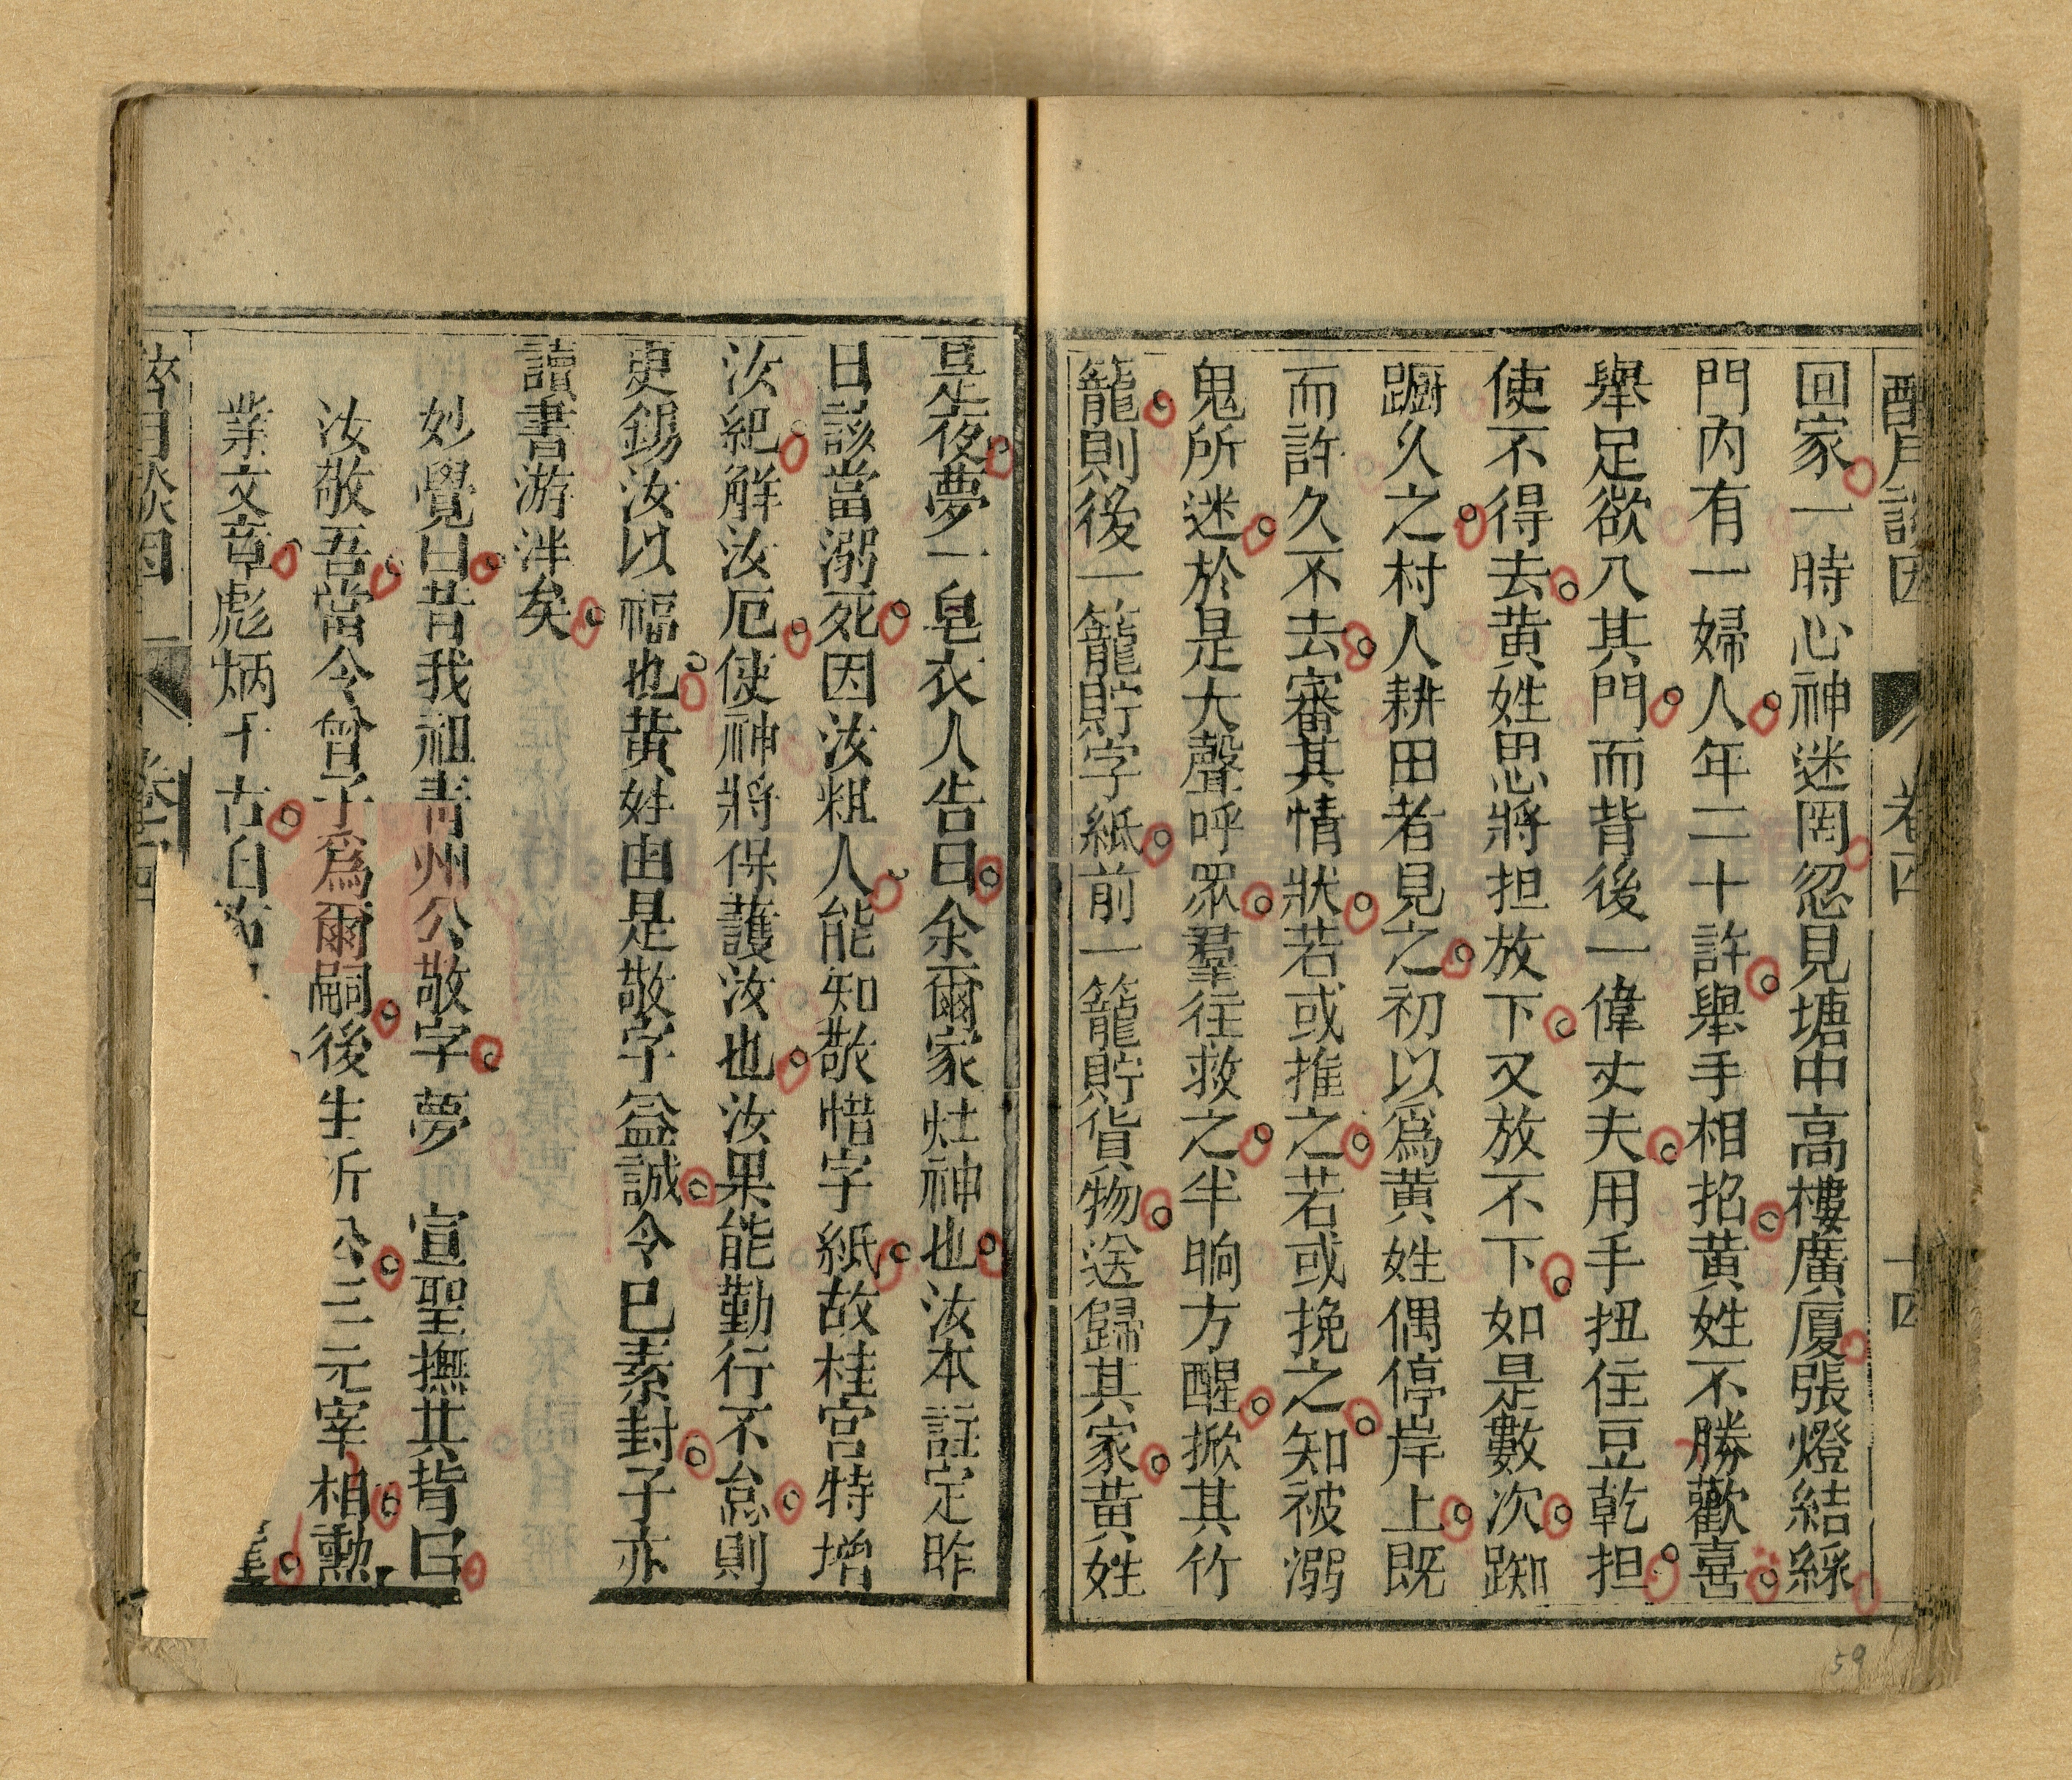 卷四 十四
回家一時心神迷罔忽見塘中高樓廣厦張燈結綵
門內有一婦人年二十許舉手相招黃姓不勝歡喜
舉足欲入其門而背後一偉丈夫用手扭住豆乾担
使不得去黃姓思將担放下又放不下如是數次踟
蹰久之村人耕田者見之初以爲黃姓偶停岸上既
而許久不去審其情狀若或推之若或挽之知被溺
鬼所迷於是大聲呼眾羣往救之半晌方醒掀其竹
籠則後一籠貯字紙前一籠貯貨物送歸其家黃姓
是夜夢一皂衣人告曰余爾家灶神也汝本註定昨
日該當溺死因汝粗人能知敬惜字紙故桂宮特增
汝紀解汝厄使神將保護汝也汝果能勤行不怠則
更錫汝以福也黃姓由是敬字益誠令已素封子亦
讀書游泮矣
妙覺曰昔我祖青州公敬字夢 宣聖撫其背曰
汝敬吾當令曾子爲爾嗣後生沂公三元宰相勲
業文章彪炳千古
卷四